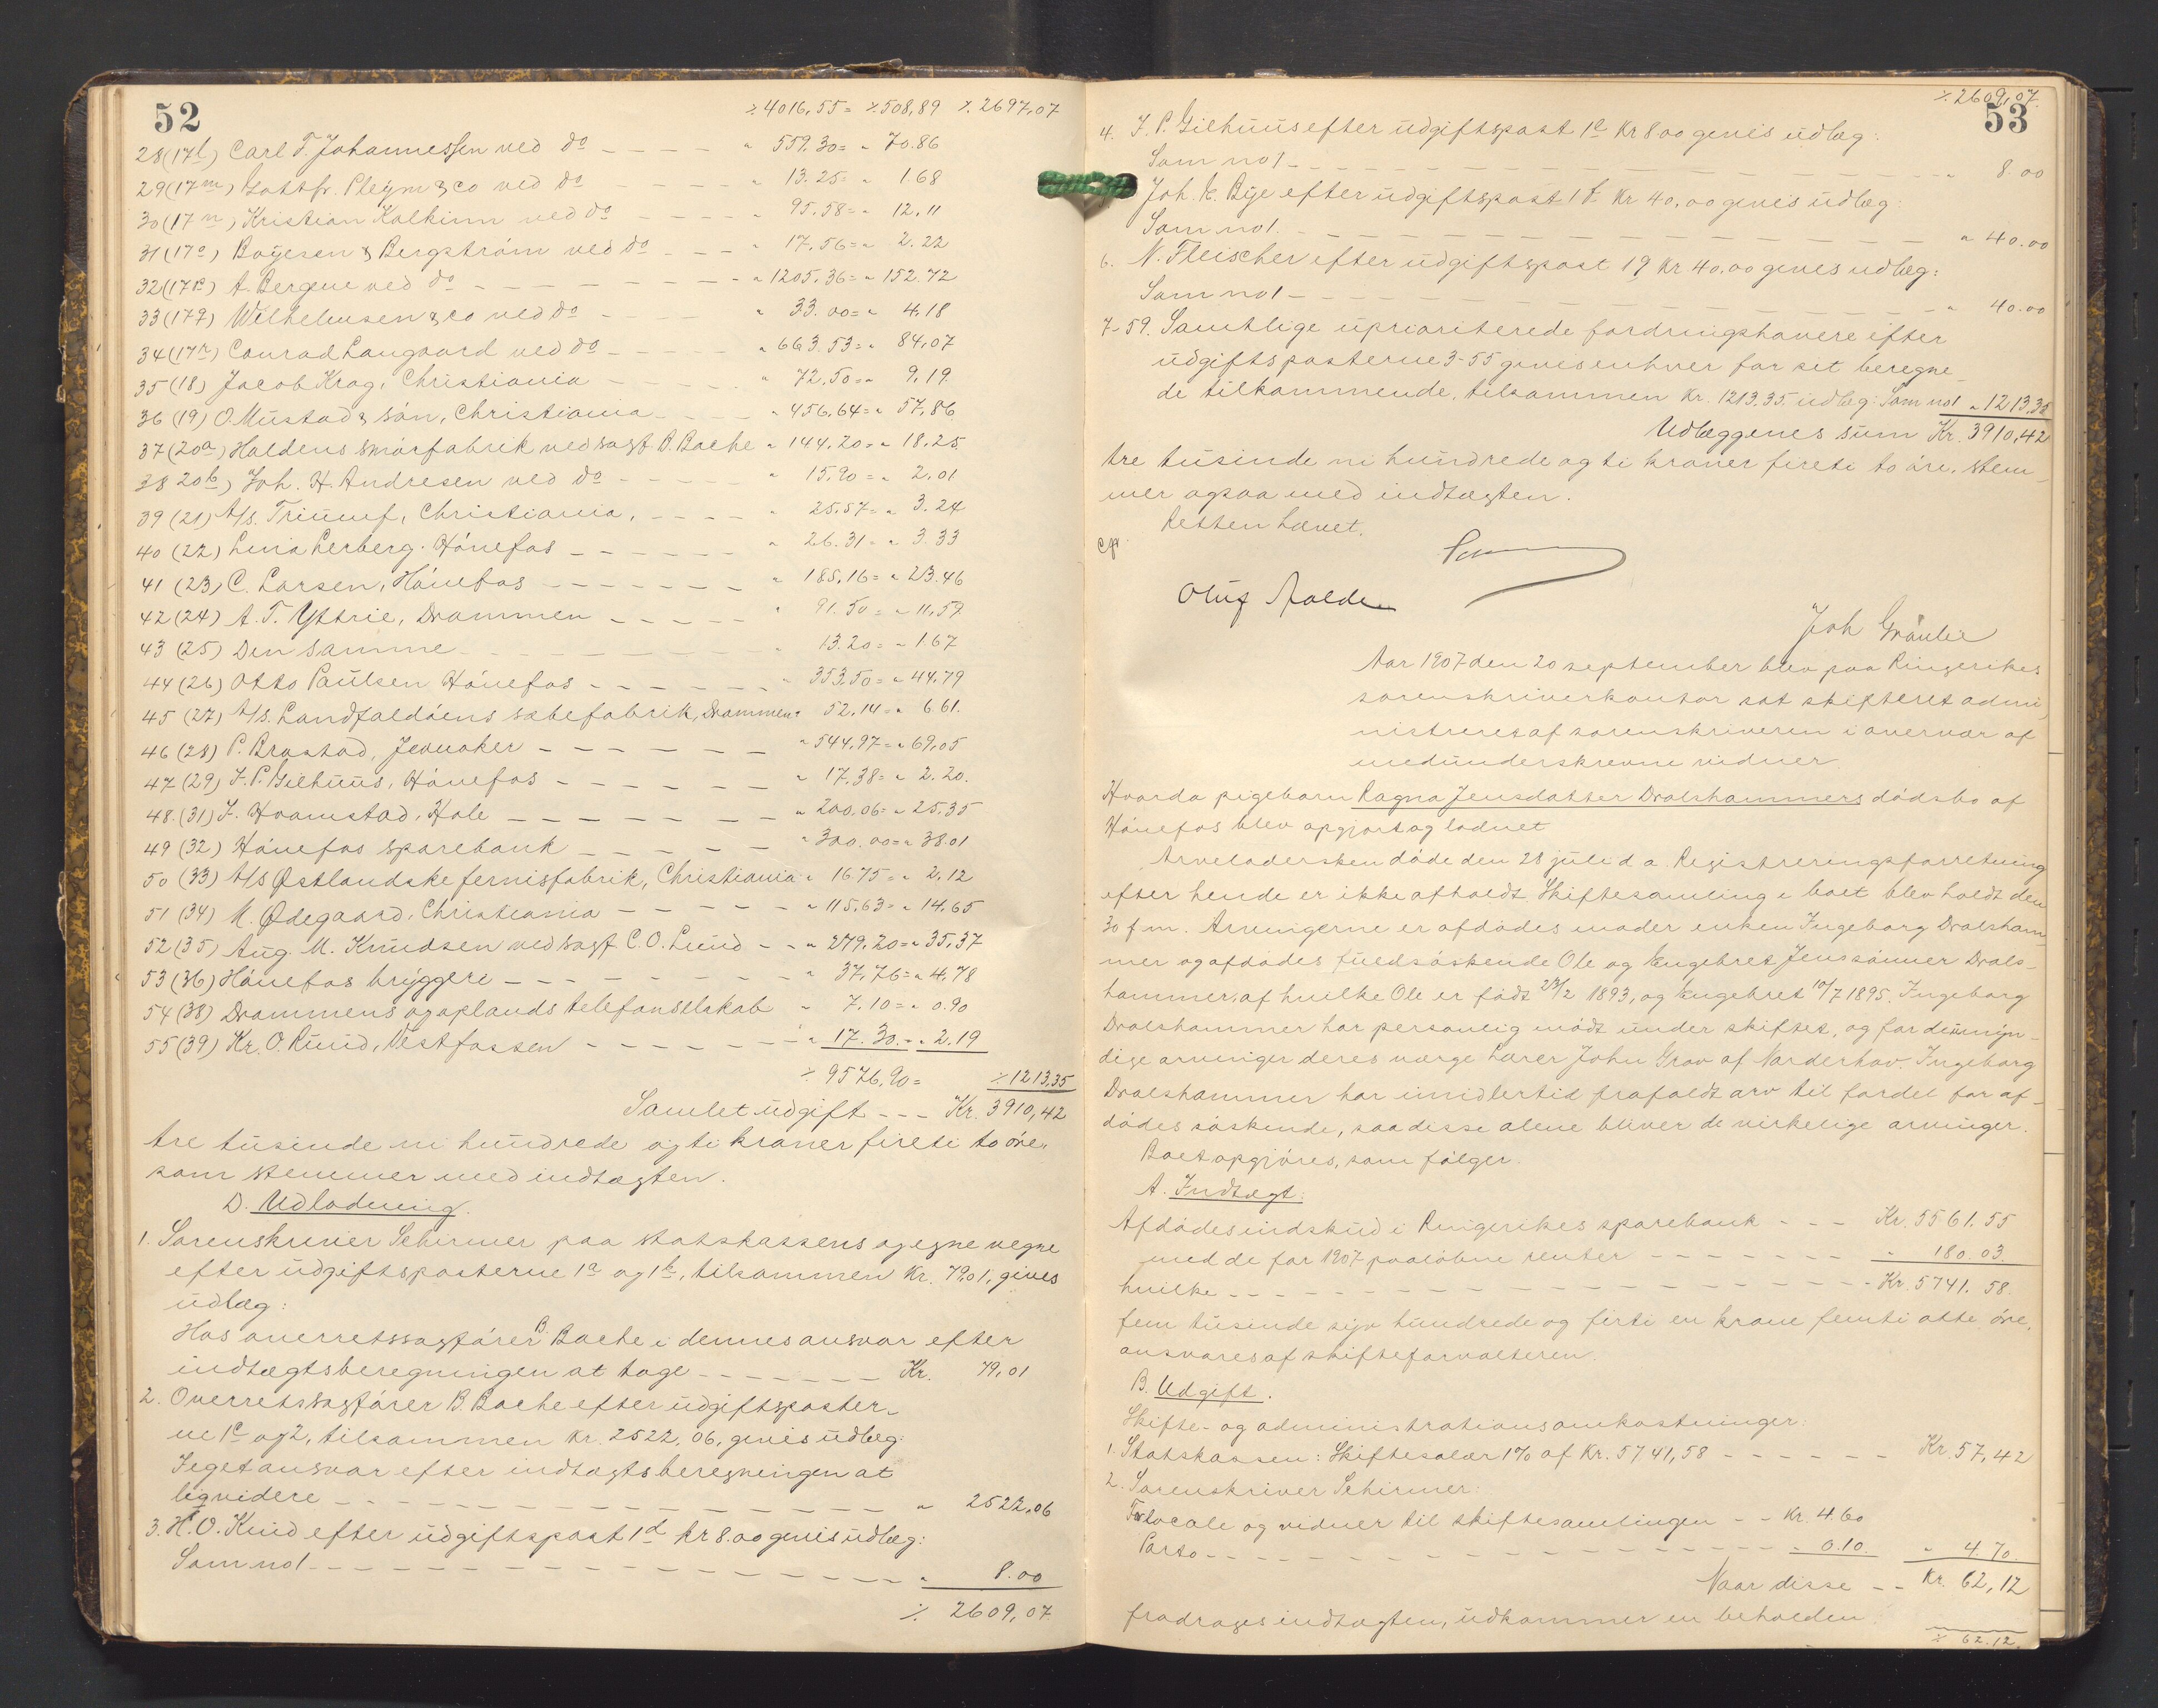 52
٪ 4016,55 = ٪ 508,89 ٪ 2697,07
28 (17l) Carl T. Johannessen ved do - - - - " 559.30 = " 70.86
29 (17m) Gottfr. Pleym & co ved do - - - - " 13.25 = " 1.68
30 (17n) Kristian Kolkinn ved do - - - - " 95.58 = " 12.11
31 (17o) Boyesen & Bergström ved do - - - " 17.56 = " 2.22
32 (17p) A. Bergene ved do - - - - - - " 1205.36 = " 152.72
33 (17q) Wilhelmsen & co ved do - - - - " 33.00 = " 4.18
34 (17r) Conrad Langaard ved do - - - - " 663.53 = " 84,07
35 (18) Jacob Krag, Christiania - - - - " 72.50 = " 9.19
36 (19) O. Mustad & sön, Christiania - - - " 456,64 = " 57,86
37 (20a) Haldens smörfabrik ved sagf. B. Bache " 144.20 = " 18.25
38 20b) Joh. H. Andresen ved do - - - - " 15.90 = " 2.01
39 (21) A/s. Triumf, Christiania, - - - - " 25.57 = " 3.24
40 (22) Lina Lerberg. Hönefos - - - - - " 26.31 = " 3.33
41 (23) C. Larsen, Hönefos - - - - - - " 185,16 = " 23.46
42 (24) A. T. Yttrie, Drammen - - - - - " 91.50 = " 11,59
43 (25) Den samme - - - - - - - " 13.20 = " 1.67
44 (26) Otto Paulsen Hönefos - - - - - - " 353.50 = " 44.79
45 (27) A/s. Landfaldöens sæbefabrik, Drammen " 52.14 = " 6.61.
46 (28) P. Brastad, Jevnaker - - - - - - " 544,97 = " 69,05
47 (29) J. P. Gilhuus, Hönefos - - - - - - " 17.38 = " 2.20.
48. (31) J. Hvamstad, Hole - - - - - - - " 200.06 = " 25.35
49 (32) Hönefos sparebank - - - - - - " 300.00 = " 38.01
50 (33) A/s Østlandske fernisfabrik, Christiania " 16.75 = " 2.12
51 (34) M. Ødegaard, Christiania - - - - - " 115.63 = " 14.65
52 (35) Aug. M. Knudsen ved sagf C. O. Lund - - " 279.20 = " 35,37
53 (36) Hönefos bryggeri - - - - - - - " 37,76 = " 4,78
54 (38) Drammens og oplands telefonselskab " 7.10 = " 0.90
55 (39) Kr. O. Ruud, Vestfossen - - - - - - " 17.30. = " 2.19
٪ 9576,90 = ٪ 1213,35
Samlet udgift - - - Kr. 3910,42
tre tusinde ni hundrede og ti kroner fireti to öre,
som stemmer med indtægten.
D. Udlodning.
1. Sorenskriver Schirmer paa statskassens og egne vegne
efter udgiftsposterne 1a og 1b, tilsammen Kr. 79,01, gives
udlæg:
Hos overretssagförer B. Bache i dennes ansvar efter
indtægtsberegningen at tage - - - - - - - Kr. 79,01
2. Overretssagförer B. Bache efter udgiftsposter-
ne 1c og 2, tilsammen Kr. 2522,06, gives udlæg:
I eget ansvar efter indtægtsberegningen at
liqvidere - - - - - - - - - - - - - " 2522,06
3. H. O. Kind efter udgiftspost 1d Kr 8.00 gives udlæg:
Som no 1 - - - - - - - - - - - - - - " 8.00
٪ 2609,07
53
٪ 2609,07.
4. J. P. Gilhuus efter udgiftspost 1e Kr 8.00 gives udlæg:
Som no 1 - - - - - - - - - - - - - - " 8.00
Joh. K. Bye efter udgiftspost 1f Kr 40,00 gives udlæg:
Som no 1. - - - - - - - - - - - - - " 40.00
6. N. Fleischer efter udgiftspost 1g Kr 40,00 gives udlæg:
Som no 1 - - - - - - - - - - - - - " 40.00
7-59. Samtlige uprioriterede fordringshavere efter
udgiftsposterne 3-55 gives enhver for set beregne-
de tilkommende, tilsammen Kr. 1213,35 udlæg: Som no 1 " 1213,35
Udlæggenes sum Kr. 3910,42
tre tusinde ni hundrede og ti kroner fireti to öre, stem-
mer ogsaa med indtægten.
Retten hævet.
Oluf Aalde
Joh Grönlie
Aar 1907 den 20 september blev paa Ringerikes
sorenskriverkontor sat skifteret admi-
nistreres af sorenskriveren i overvær af
medunderskrevne vidner.
Hvorda pigebarn Ragna Jensdatter Dvalshammers dödsbo af
Hönefos blev opgjort og lodnet
Arveladersken döde den 28 juli d a. Registreringsforretning
efter hende er ikke afholdt. Skiftesamling i boet blev holdt den
30 f.m. Arvingerne er afdödes moder enken Ingeborg Dvalsham-
mer og afdödes fuldsöskende Ole og Engebret Jenssönner Dvals-
hammer, af hvilke Ole er födt 23/2 1893, og Engebret 10/7 1895. Ingeborg
Dvalshammer har personlig mödt under skiftet, og for de umyn-
dige arvinger deres værge lærer John Grav af Norderhov. Ingeborg
Dvalshammer har imidlertid frafaldt arv til fordel for af-
dödes söskende, saa disse alene bliver de virkelige arvinger.
Boet opgjöres, som fölger.
A. Indtægt:
Afdödes indskud i Ringerikes sparebank - - - Kr. 5561.55
med de for 1907 paalöbne renter - - - - - - " 180.03.
hvilke - - - - - - - - - - - - - Kr. 5741.58.
fem tusinde syv hundrede og firti en krone femti otte öre,
ansvares af skifteforvalteren.
B. Udgift.
Skifte- og administrationsomkostninger:
1. Statskassen: Skiftesalær 1% af Kr. 5741,58 - - - - - - Kr. 57,42
2. Sorenskriver Schirmer:
For locale og vidner til skiftesamlingen - - Kr. 4.60
Porto - - - - - - - - - - - - - " 0.10. " 4.70.
Naar disse - - Kr. 62,12
fradrages indtægten, udkommer en beholden
٪ 62.12.